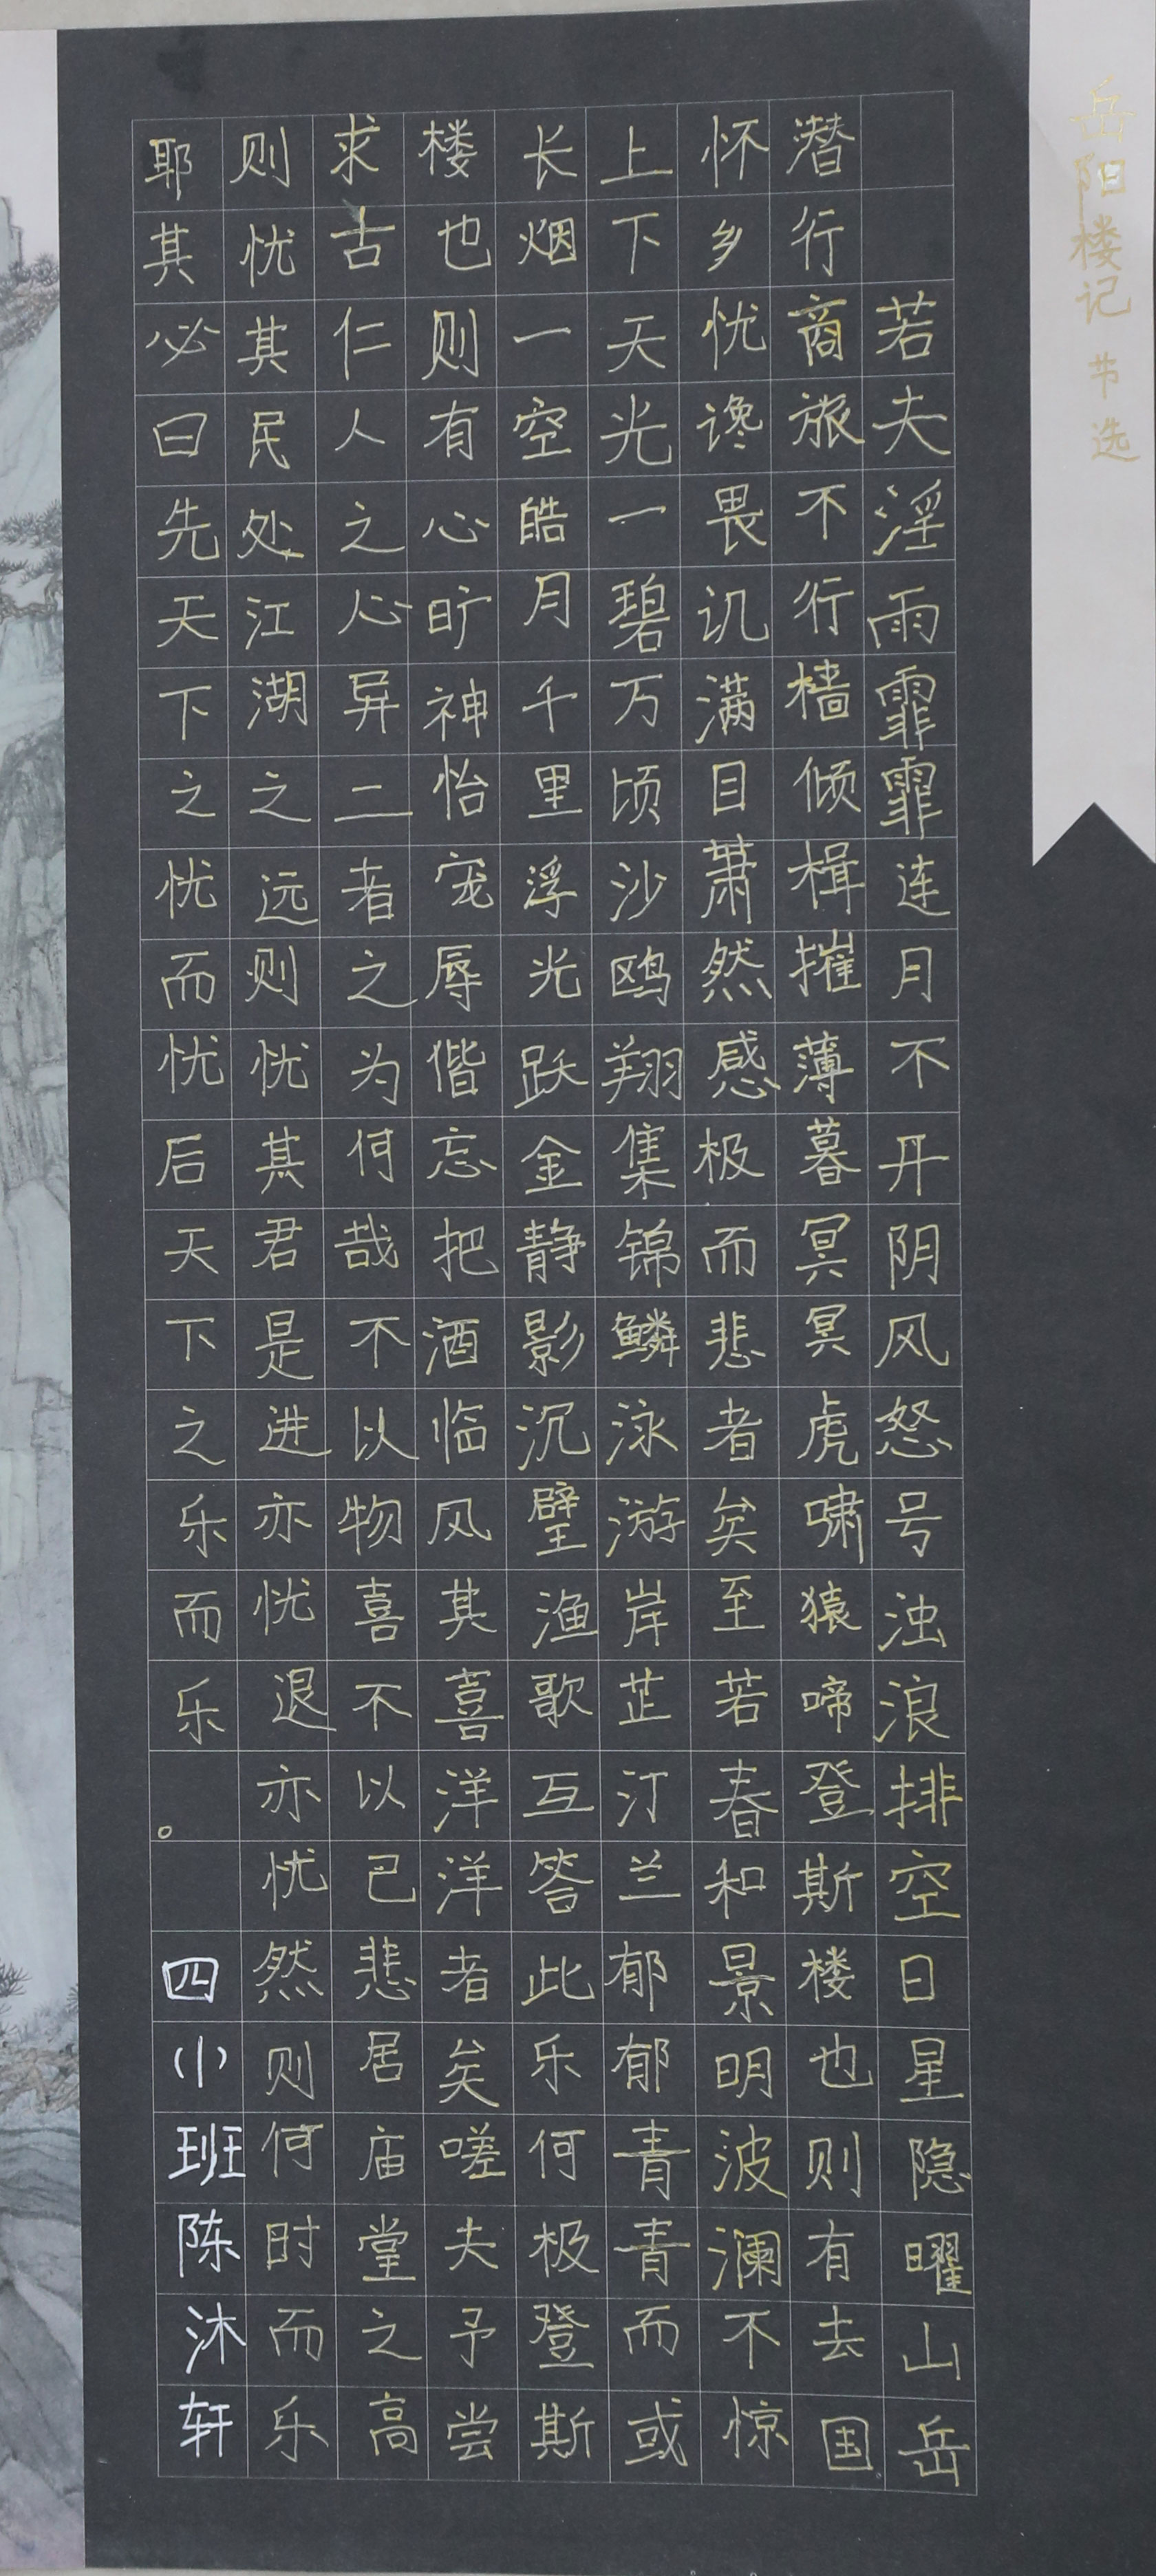 岳阳楼记 节选
若夫淫雨霏霏连月不开阴风怒号浊浪排空日星隐曜山岳
潜行商旅不行樯倾楫摧薄暮冥冥虎啸猿啼登斯楼也则有去国
怀乡忧谗畏讥满目萧然感极而悲者矣至若春和景明波澜不惊
上下天光一碧万顷沙鸥翔集锦鳞泳游岸芷汀兰郁郁青青而或
长烟一空皓月千里浮光跃金静影沉璧渔歌互答此乐何极登斯
楼也则有心旷神怡宠辱偕忘把酒临风其喜洋洋者矣嗟夫予尝
求古仁人之心异二者之为何哉不以物喜不以己悲居庙堂之高
则忧其民处江湖之远则忧其君是进亦忧退亦忧然则何时而乐
耶其必曰先天下之忧而忧后天下之乐而乐。 四(1)班陈沐轩